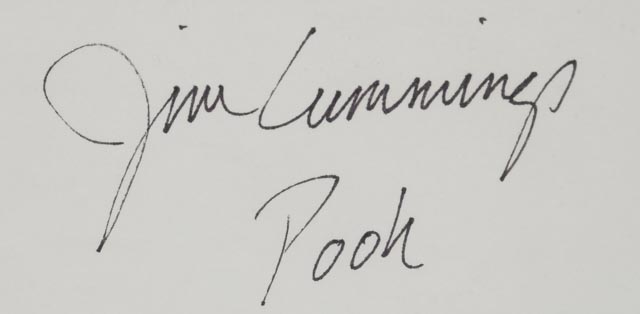 Jim Cummings
Pooh